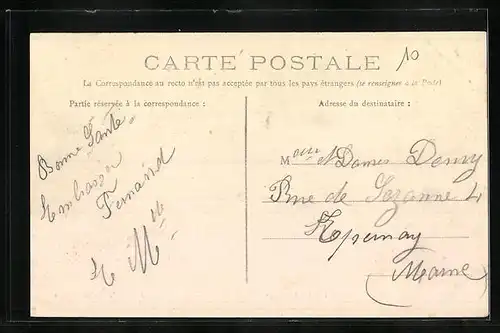 CARTE POSTALE
10
La Correspondance au recto n'est pas acceptée par tous les pays étrangers (se renseigner à la Poste)
Partie réservée à la correspondance :
Adresse du destinataire :
Bonne Santé
Fernand
M
Rue de Sezanne 4
Epernay
(Marne)